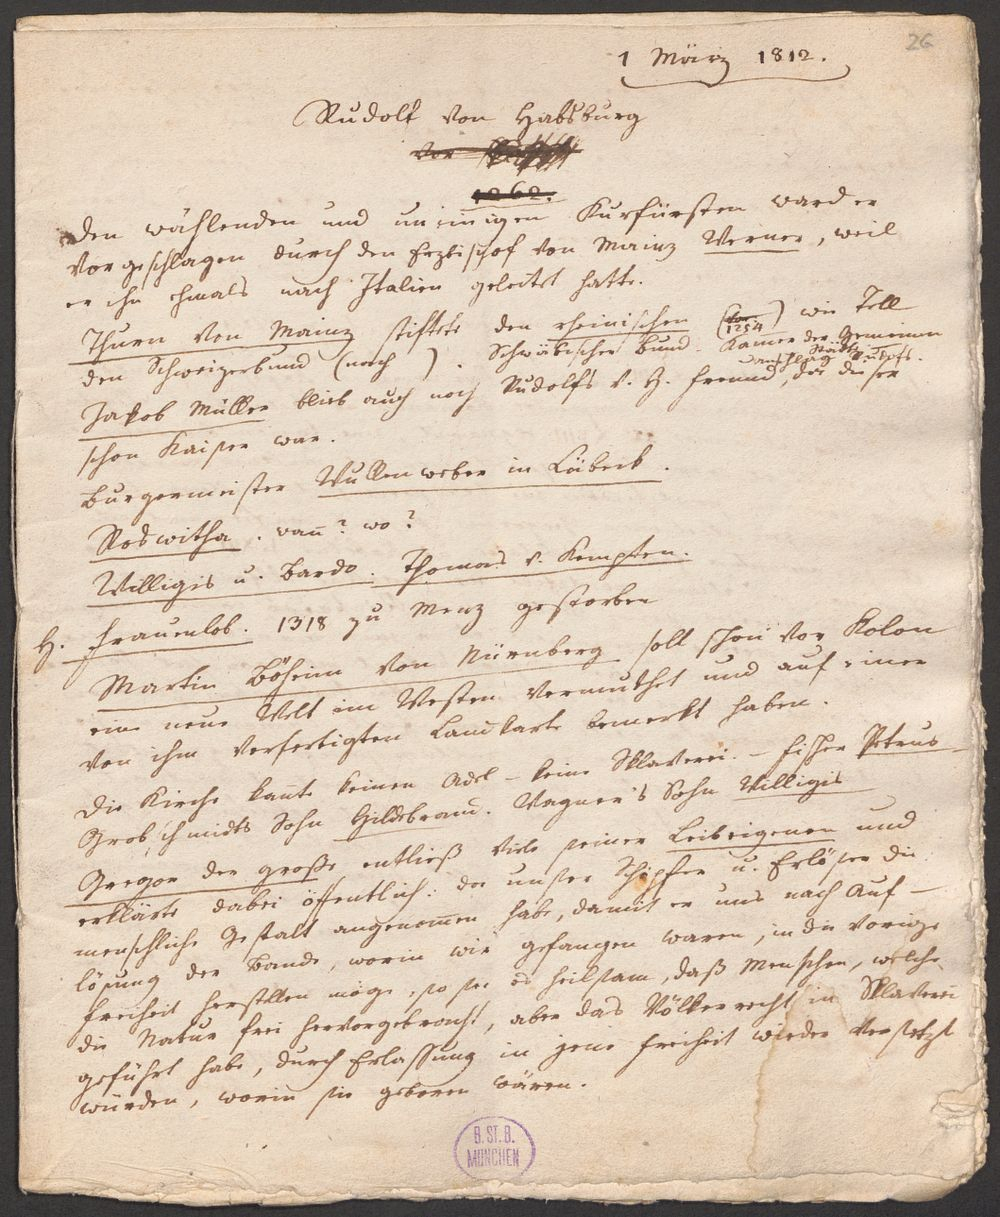 26
1 März 1812.
Rudolf von Habsburg
vor
1262.
Den wählenden und uneinigen Kurfürsten ward er
vorgeschlagen durch den Erzbischof von Mainz Werner, weil
er ihn ehmals nach Italien geleitet hatte.
Thurn von Mainz stiftete den rheinischen (1254) wie Tell
den Schweizerbund (nach ). Schwäbischer Bund. Kamer der Gemeinen
Städte
anschlag Rudolfs.
Jakob Müller blieb auch noch Rudolfs v. H. Freund, da dieser
schon Kaiser war.
Burgermeister Wullenweber in Lübeck.
Roswitha. wañ? wo?
Willigis u. Bardo. Thomas v. Kempten.
H. Frauenlob. 1318 zu Menz gestorben
Martin Böheim von Nürnberg soll schon vor Kolon
eine neue Welt im Westen vermuthet und auf einer
von ihm verfertigten Landkarte bemerkt haben.
Die Kirche kañte keinen Adel – keine Sklaverei. – Fischer Petrus –
Grobschmidts Sohn Hildebrand. Wagner's Sohn Willigis
Gregor der große entließ viele seiner Leibeigenen und
erklärte dabei öffentlich: da unser Schöpfer u. Erlöser die
menschliche Gestalt angenom̄en habe, damit er uns nach Auf–
lösung der Bande, worin wir gefangen waren, in die vorige
Freiheit herstellen möge, so sei es heilsam, daß Menschen, welche
die Natur frei hervorgebracht, aber das Völkerrecht in Sklaverei
geführt habe, durch Erlassung in jene Freiheit wieder versetzt
würden, worin sie geboren wären.
B. ST. B.
MÜNCHEN